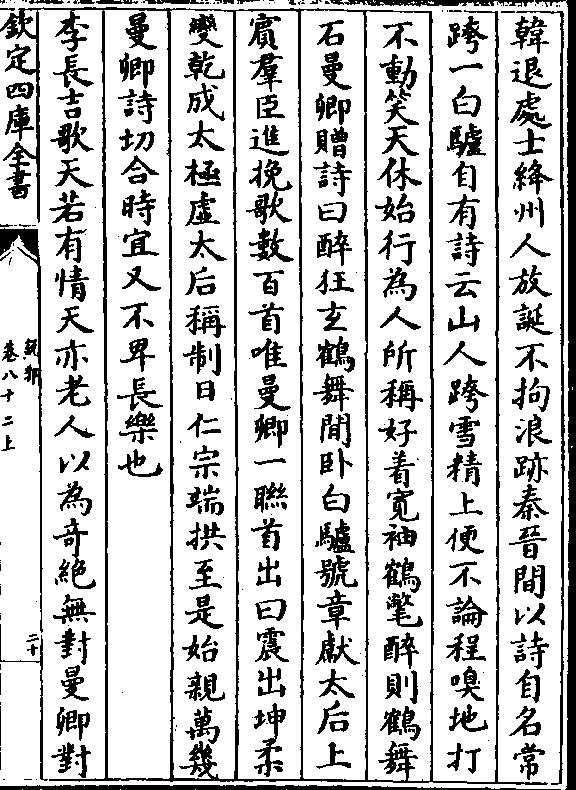 韓退處士絳州人放誕不拘浪跡秦晉間以詩自名常
跨一白驢自有詩云山人跨雪精上便不論程嗅地打
不動笑天休始行為人所稱好着寛袖鶴氅醉則鶴舞
石曼卿贈詩曰醉狂玄鶴舞閒卧白驢號章獻太后上
賓羣臣進挽歌數百首唯曼卿一聯首出曰震出坤柔
變乾成太極虛太后稱制日仁宗端拱至是始親萬幾
曼卿詩切合時宜又不卑長樂也
李長吉歌天若有情天亦老人以為奇絶無對曼卿對
欽定四庫全書
說郛
卷八十二上
二十